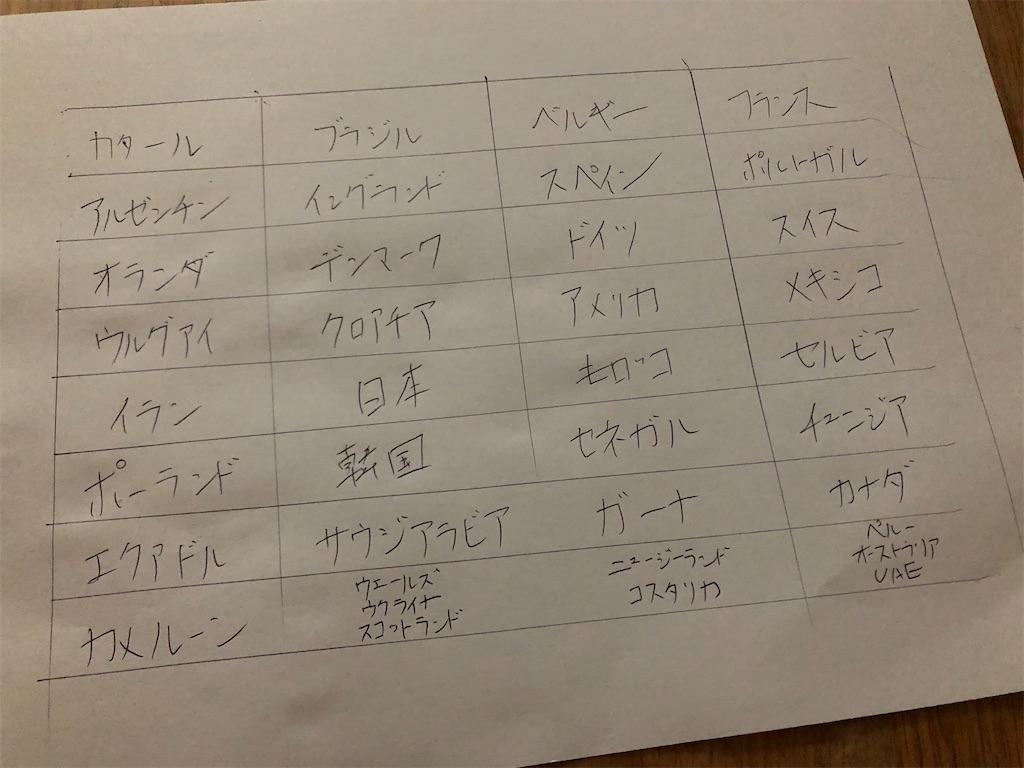 カタール ブラジル ベルギー フランス
アルゼンチン イングランド スペイン ポルトガル
オランダ デンマーク ドイツ スイス
ウルグアイ クロアチア アメリカ メキシコ
イラン 日本 モロッコ セルビア
ポーランド 韓国 セネガル チュニジア
エクアドル サウジアラビア ガーナ カナダ
カメルーン
ウェールズ
ウクライナ
スコットランド
ニュージーランド
コスタリカ
ペルー
オーストラリア
UAE